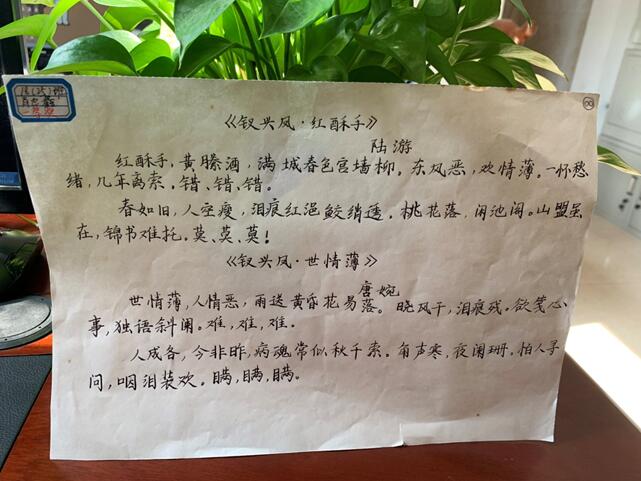 《钗头凤·红酥手》
陆游
红酥手,黄滕酒,满城春色宫墙柳。东风恶,欢情薄。一怀愁
绪,几年离索。错、错、错。
春如旧,人空瘦,泪痕红浥鲛绡透。桃花落,闲池阁。山盟虽
在,锦书难托。莫、莫、莫!
《钗头凤·世情薄》
唐婉
世情薄,人情恶,雨送黄昏花易落。晓风干,泪痕残。欲笺心
事,独语斜阑。难,难,难。
人成各,今非昨,病魂常似秋千索。角声寒,夜阑珊。怕人寻
问,咽泪装欢。瞒,瞒,瞒。